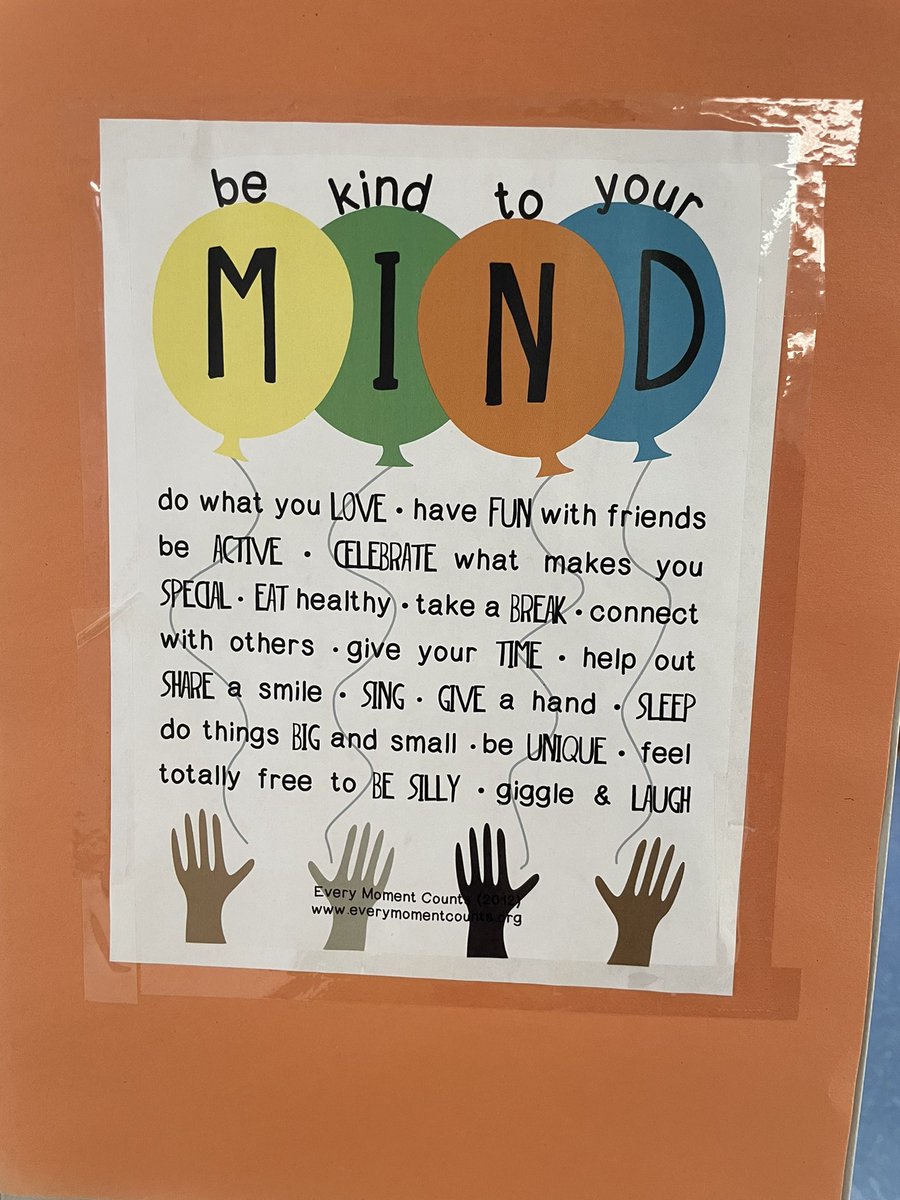 be kind to your
MIND
do what you LOVE • have FUN with friends
be ACTIVE • CELEBRATE what makes you
SPECIAL • EAT healthy • take a BREAK • connect
with others • give your TIME • help out
SHARE a smile • SING • GIVE a hand • SLEEP
do things BIG and small • be UNIQUE • feel
totally free to BE SILLY • giggle & LAUGH
Every Moment Counts (2012)
www.everymomentcounts.org